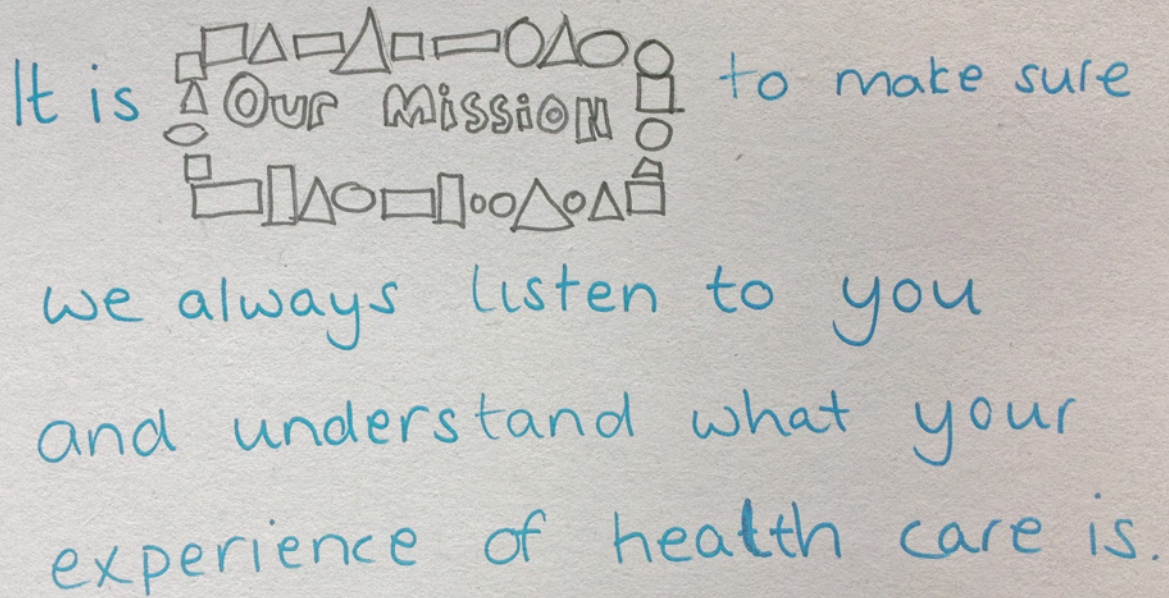 It is Our Mission to make sure
we always listen to you
and understand what your
experience of health care is.